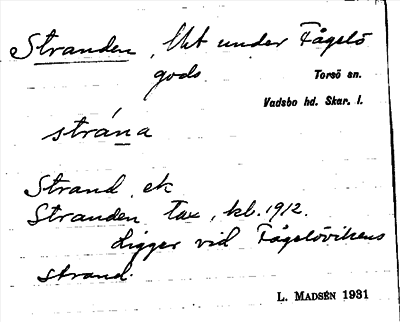 Stranden, lht under Fågelö
gods. Torsö sn.
Vadsbo hd. Skar. l.
strána
Strand ek
Stranden Tax, kb. 1912.
Ligger vid Fågelövikens
strand.
L. MADSÉN 1931